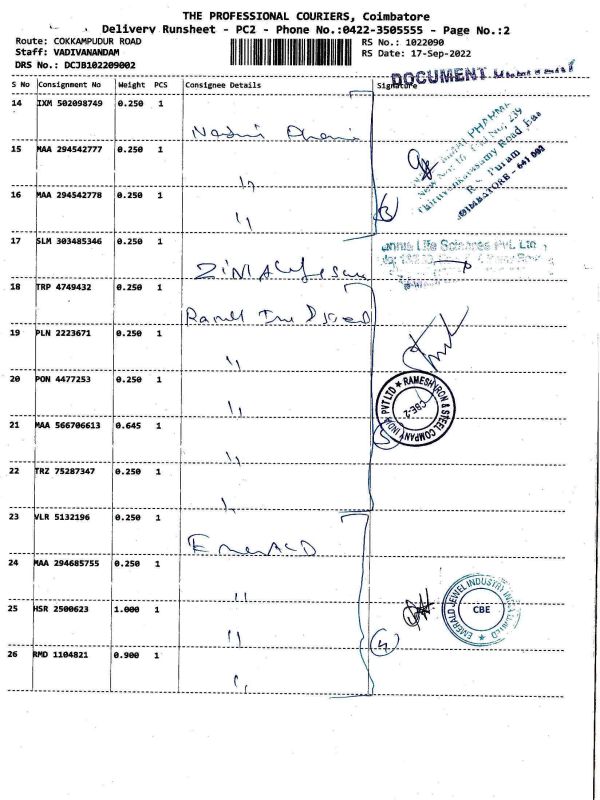 THE PROFESSIONAL COURIERS, Coimbatore
Delivery Runsheet - PC2 - Phone No.:0422-3505555 - Page No.:2
Route: COKKAMPUDUR ROAD
RS No.: 1022090
Staff: VADIVANANDAM
RS Date: 17-Sep-2022
DRS No.: DCJB102209002
DOCUMENT
S No Consignment No Weight PCS Consignee Details Signature
14 IXM 502098749 0.250 1
15 MAA 294542777 0.250 1 "
16 MAA 294542778 0.250 1 "
3
R.S. Puram
COIMBATORE - 641 002
17 SLM 303485346 0.250 1
18 TRP 4749432 0.250 1
19 PLN 2223671 0.250 1 "
20 PON 4477253 0.250 1 "
RAMESH IRON & STEEL COMPANY INDIA PVT LTD
CBE-2
5
21 MAA 566706613 0.645 1 "
22 TRZ 75287347 0.250 1 "
23 VLR 5132196 0.250 1 Emerald
24 MAA 294685755 0.250 1 "
25 HSR 2500623 1.000 1 "
EMERALD JEWEL INDUSTRY INDIA LIMITED
CBE
4
26 RMD 1104821 0.900 1 "